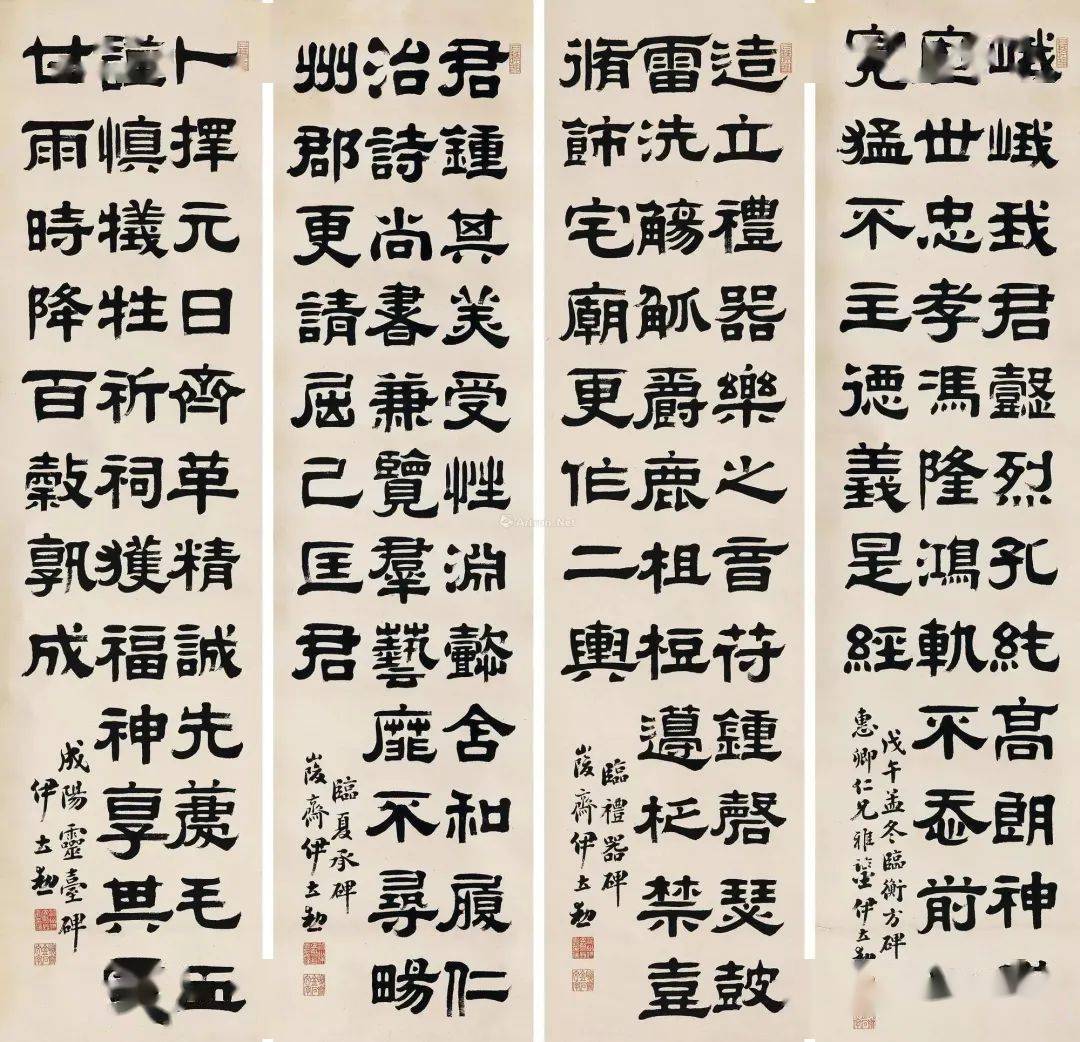 峨峨我君懿烈孔純高朗神
世忠孝馮隆鴻軌不忝前
寬猛不主德義是經
戊午孟冬臨衡方碑
惠卿仁兄雅鑒伊立勳
造立禮器樂之音苻鍾磬瑟鼓
雷洗觴觚爵鹿柤梪籩柉禁壺
脩飾宅廟更作二輿
臨禮器碑
峻齋伊立勳
君鍾其美受性淵懿含和履仁
治詩尚書兼覽羣藝靡不尋暢
州郡更請屈己匡君
臨夏承碑
峻齋伊立勳
卜擇元日齊革精誠先薦毛血
慎犧牲祈祠獲福神享其
甘雨時降百穀孰成
成陽靈臺碑
伊立勳
Artron.Net